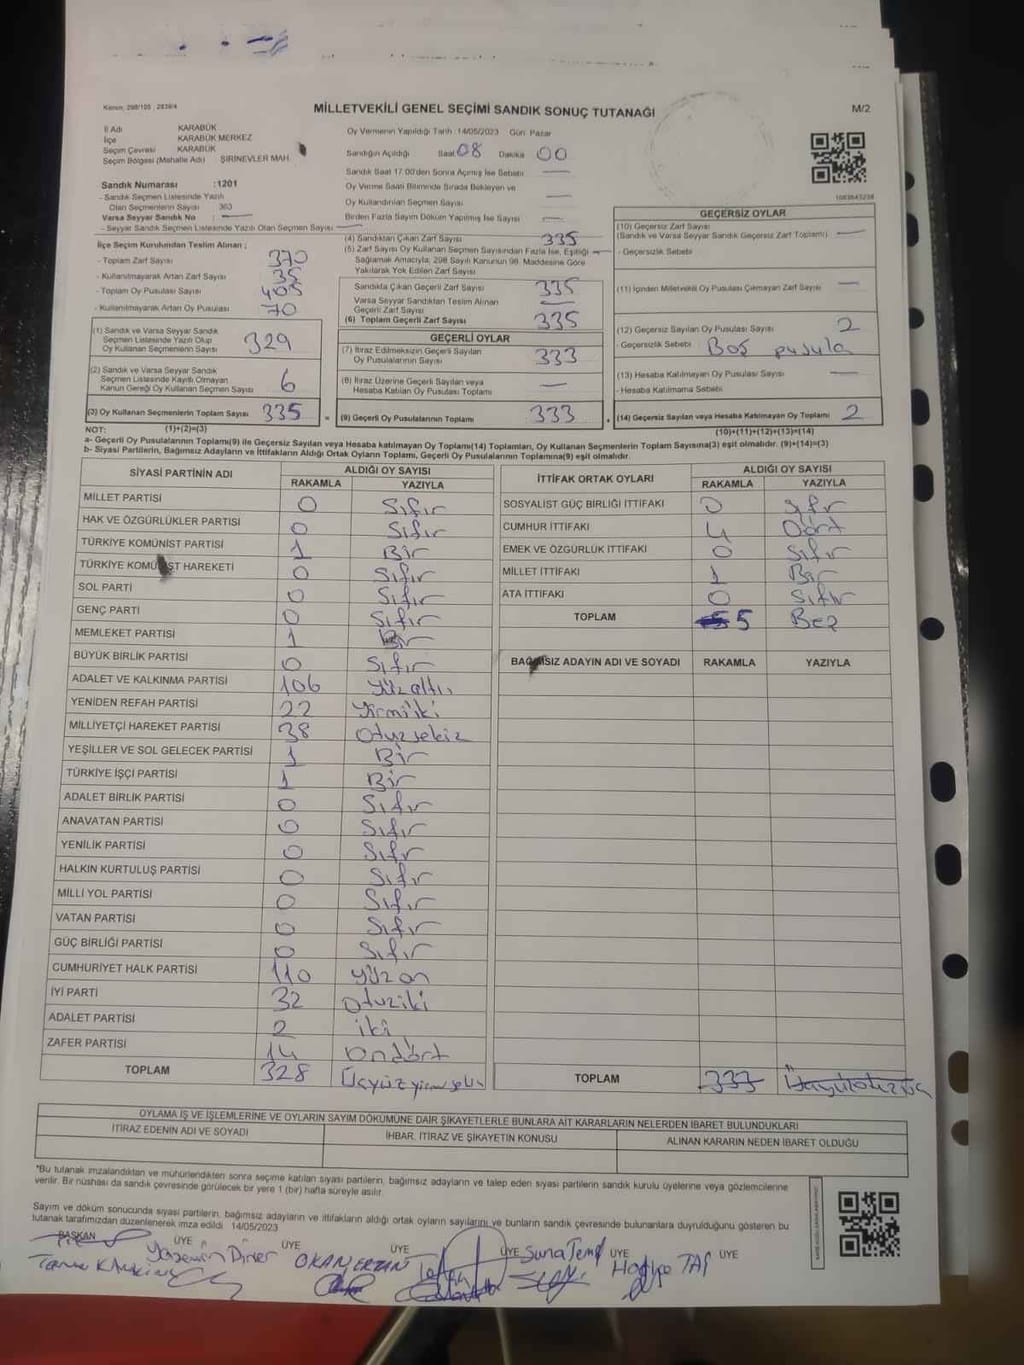 Kanun; 298/105 , 2839/4
MİLLETVEKİLİ GENEL SEÇİMİ SANDIK SONUÇ TUTANAĞI
M/2
İl Adı KARABÜK
İlçe KARABÜK MERKEZ
Seçim Çevresi KARABÜK
Seçim Bölgesi (Mahalle Adı) ŞİRİNEVLER MAH.
Oy Vermenin Yapıldığı Tarih :14/05/2023 Gün Pazar
Sandığın Açıldığı Saat 08 Dakika 00
Sandık Saat 17.00'den Sonra Açılmış İse Sebebi —
Oy Verme Saati Bitiminde Sırada Bekleyen ve
Oy Kullandırılan Seçmen Sayısı —
Birden Fazla Sayım Döküm Yapılmış İse Sayısı —
Sandık Numarası :1201
- Sandık Seçmen Listesinde Yazılı
Olan Seçmenlerin Sayısı 363
Varsa Seyyar Sandık No : —
- Seyyar Sandık Seçmen Listesinde Yazılı Olan Seçmen Sayısı —
İlçe Seçim Kurulundan Teslim Alınan ;
- Toplam Zarf Sayısı 370
- Kullanılmayarak Artan Zarf Sayısı 35
- Toplam Oy Pusulası Sayısı 405
- Kullanılmayarak Artan Oy Pusulası 70
(1) Sandık ve Varsa Seyyar Sandık
Seçmen Listesinde Yazılı Olup
Oy Kullanan Seçmenlerin Sayısı 329
(2) Sandık ve Varsa Seyyar Sandık
Seçmen Listesinde Kayıtlı Olmayan
Kanun Gereği Oy Kullanan Seçmen Sayısı 6
(3) Oy Kullanan Seçmenlerin Toplam Sayısı 335 =
(1)+(2)=(3)
(4) Sandıktan Çıkan Zarf Sayısı 335
(5) Zarf Sayısı Oy Kullanan Seçmen Sayısından Fazla İse, Eşitliği —
Sağlamak Amacıyla, 298 Sayılı Kanunun 98. Maddesine Göre
Yakılarak Yok Edilen Zarf Sayısı
Sandıkta Çıkan Geçerli Zarf Sayısı 335
Varsa Seyyar Sandıktan Teslim Alınan
Geçerli Zarf Sayısı —
(6) Toplam Geçerli Zarf Sayısı 335
GEÇERLİ OYLAR
(7) İtiraz Edilmeksizin Geçerli Sayılan
Oy Pusulalarının Sayısı 333
(8) İtiraz Üzerine Geçerli Sayılan veya
Hesaba Katılan Oy Pusulası Toplamı —
(9) Geçerli Oy Pusulalarının Toplamı 333 +
GEÇERSİZ OYLAR
(10) Geçersiz Zarf Sayısı
(Sandık ve Varsa Seyyar Sandık Geçersiz Zarf Toplamı) —
- Geçersizlik Sebebi
(11) İçinden Milletvekili Oy Pusulası Çıkmayan Zarf Sayısı —
(12) Geçersiz Sayılan Oy Pusulası Sayısı 2
- Geçersizlik Sebebi Boş pusula
(13) Hesaba Katılmayan Oy Pusulası Sayısı —
- Hesaba Katılmama Sebebi
(14) Geçersiz Sayılan veya Hesaba Katılmayan Oy Toplamı 2
(10)+(11)+(12)+(13)=(14)
NOT:
a- Geçerli Oy Pusulalarının Toplamı(9) ile Geçersiz Sayılan veya Hesaba katılmayan Oy Toplamı(14) Toplamları, Oy Kullanan Seçmenlerin Toplam Sayısına(3) eşit olmalıdır. (9)+(14)=(3)
b- Siyasi Partilerin, Bağımsız Adayların ve İttifakların Aldığı Ortak Oyların Toplamı, Geçerli Oy Pusulalarının Toplamına(9) eşit olmalıdır.
SİYASİ PARTİNİN ADI ALDIĞI OY SAYISI
RAKAMLA YAZIYLA
MİLLET PARTİSİ 0 Sıfır
HAK VE ÖZGÜRLÜKLER PARTİSİ 0 Sıfır
TÜRKİYE KOMÜNİST PARTİSİ 1 Bir
TÜRKİYE KOMÜNİST HAREKETİ 0 Sıfır
SOL PARTİ 0 Sıfır
GENÇ PARTİ 0 Sıfır
MEMLEKET PARTİSİ 1 Bir
BÜYÜK BİRLİK PARTİSİ 0 Sıfır
ADALET VE KALKINMA PARTİSİ 106 Yüzaltı
YENİDEN REFAH PARTİSİ 22 Yirmiiki
MİLLİYETÇİ HAREKET PARTİSİ 38 Otuzsekiz
YEŞİLLER VE SOL GELECEK PARTİSİ 1 Bir
TÜRKİYE İŞÇİ PARTİSİ 1 Bir
ADALET BİRLİK PARTİSİ 0 Sıfır
ANAVATAN PARTİSİ 0 Sıfır
YENİLİK PARTİSİ 0 Sıfır
HALKIN KURTULUŞ PARTİSİ 0 Sıfır
MİLLİ YOL PARTİSİ 0 Sıfır
VATAN PARTİSİ 0 Sıfır
GÜÇ BİRLİĞİ PARTİSİ 0 Sıfır
CUMHURİYET HALK PARTİSİ 110 Yüzon
İYİ PARTİ 32 Otuziki
ADALET PARTİSİ 2 iki
ZAFER PARTİSİ 14 Ondört
TOPLAM 328 Üçyüzyirmisekiz
İTTİFAK ORTAK OYLARI ALDIĞI OY SAYISI
RAKAMLA YAZIYLA
SOSYALİST GÜÇ BİRLİĞİ İTTİFAKI 0 Sıfır
CUMHUR İTTİFAKI 4 Dört
EMEK VE ÖZGÜRLÜK İTTİFAKI 0 Sıfır
MİLLET İTTİFAKI 1 Bir
ATA İTTİFAKI 0 Sıfır
TOPLAM 5 Beş
BAĞIMSIZ ADAYIN ADI VE SOYADI RAKAMLA YAZIYLA
TOPLAM 333
OYLAMA İŞ VE İŞLEMLERİNE VE OYLARIN SAYIM DÖKÜMÜNE DAİR ŞİKAYETLERLE BUNLARA AİT KARARLARIN NELERDEN İBARET BULUNDUKLARI
İTİRAZ EDENİN ADI VE SOYADI İHBAR, İTİRAZ VE ŞİKAYETİN KONUSU ALINAN KARARIN NEDEN İBARET OLDUĞU
*Bu tutanak imzalandıktan ve mühürlendikten sonra seçime katılan siyasi partilerin, bağımsız adayların ve talep eden siyasi partilerin sandık kurulu üyelerine veya gözlemcilerine
verilir. Bir nüshası da sandık çevresinde görülecek bir yere 1 (bir) hafta süreyle asılır.
Sayım ve döküm sonucunda siyasi partilerin, bağımsız adayların ve ittifakların aldığı ortak oyların sayılarını ve bunların sandık çevresinde bulunanlara duyrulduğunu gösteren bu
tutanak tarafımızdan düzenlenerek imza edildi 14/05/2023
BAŞKAN ÜYE ÜYE ÜYE ÜYE ÜYE ÜYE
Yasemin Diner OKAN ERTAN Suna Temel Hatice TAŞ